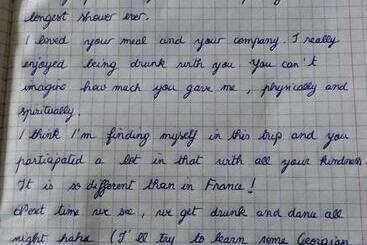 longest shower ever.
I loved your meal and your company. I really
enjoyed being drunk with you. You can't
imagine how much you gave me, physically and
spiritually.
I think I'm finding myself in this trip and you
participated a lot in that with all your kindness.
It is so different than in France!
Next time we see, we get drunk and dance all
night haha (I'll try to learn some Georgian